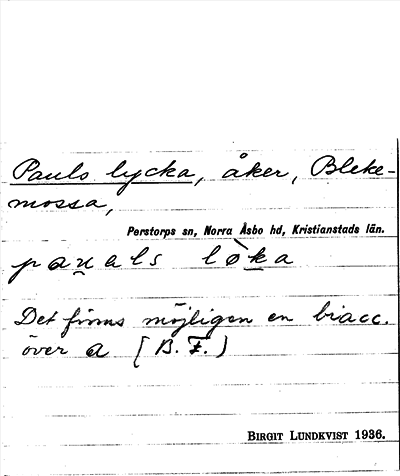 Pauls lycka, åker, Bleke-
mossa,
Perstorps sn, Norra Åsbo hd, Kristianstads län.
pau̯als lø̀ka
Det finns möjligen en biacc.
över a [B. F.)
BIRGIT LUNDKVIST 1936.